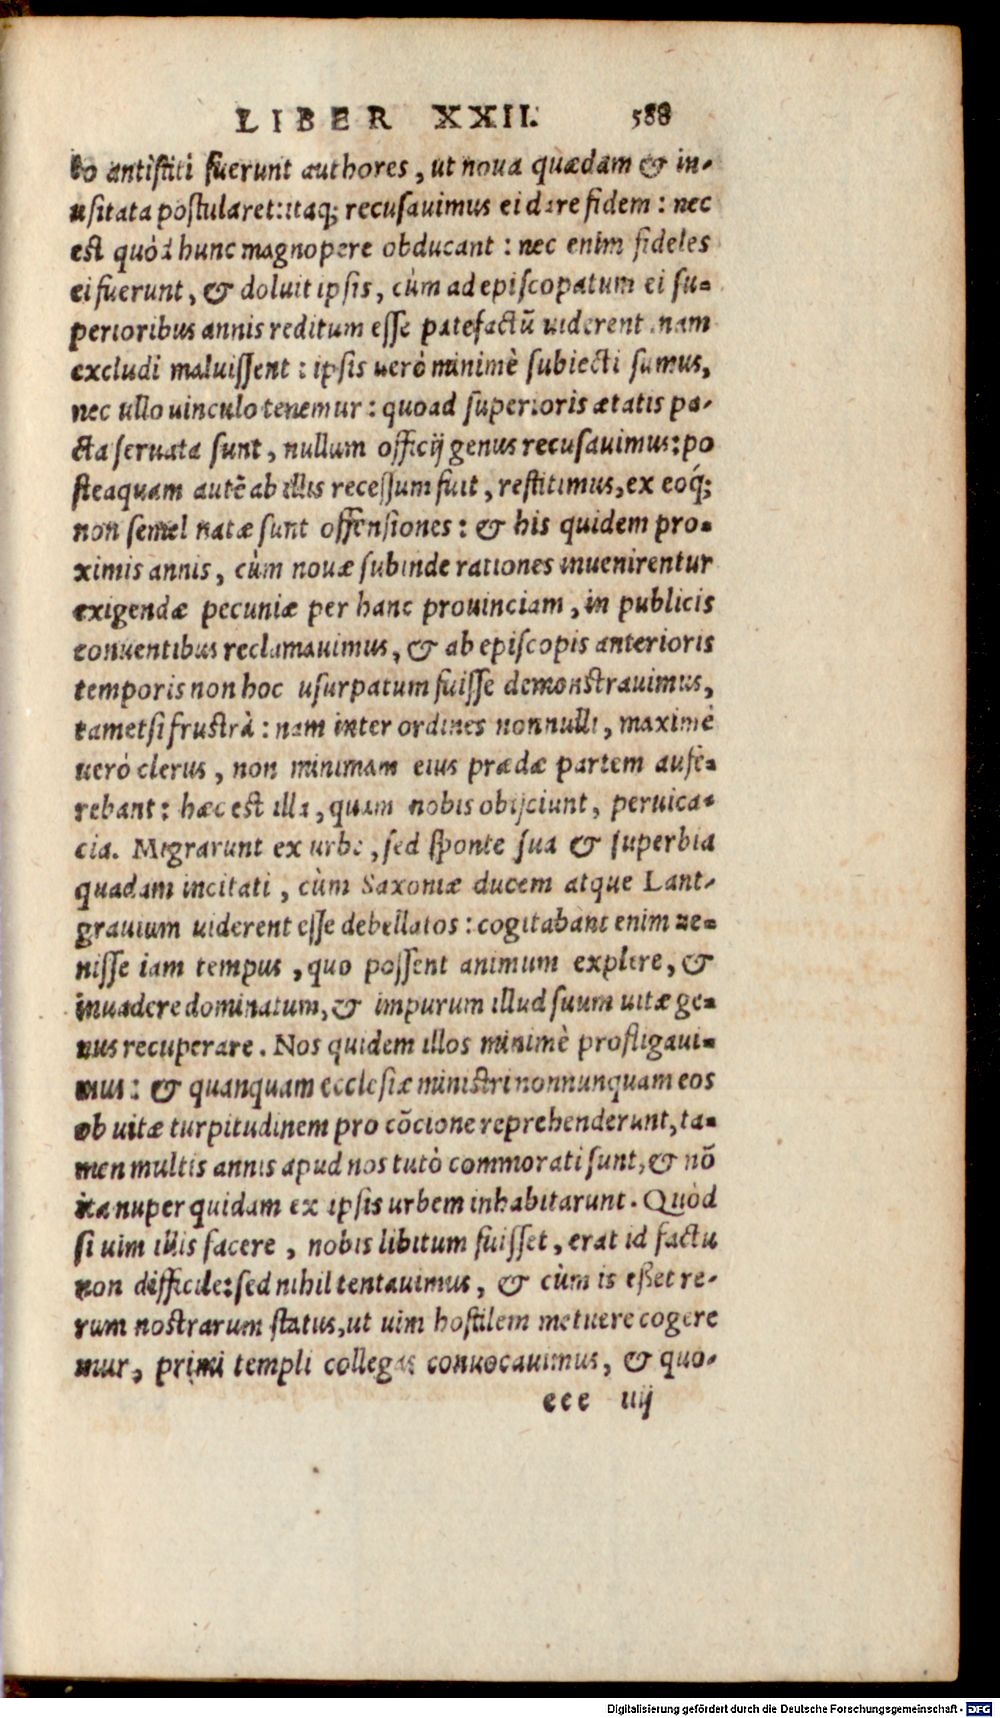 LIBER XXII. 588
to antiſtiti fuerunt authores, ut noua quædam & in-
uſitata poſtularet: itaq; recuſauimus ei dare fidem: nec
eſt quòd hunc magnopere obducant: nec enim fideles
ei fuerunt, & doluit ipſis, cùm ad epiſcopatum ei ſu-
perioribus annis reditum eſſe patefactū uiderent nam
excludi maluiſſent: ipſis uerò minimè ſubiecti ſumus,
nec ullo uinculo tenemur: quoad ſuperioris ætatis pa-
cta ſeruata ſunt, nullum officij genus recuſauimus: po
ſteaquam autē ab illis receſſum fuit, reſtitimus, ex eoq́;
non ſemel natæ ſunt offenſiones: & his quidem pro-
ximis annis, cùm nouæ ſubinde rationes inuenirentur
exigendæ pecuniæ per hanc prouinciam, in publicis
conuentibus reclamauimus, & ab epiſcopis anterioris
temporis non hoc uſurpatum fuiſſe demonſtrauimus,
tametſi fruſtrà: nam inter ordines nonnulli, maximè
uerò clerus, non minimam eius prædæ partem aufe-
rebant: hæc eſt illa, quam nobis obijciunt, peruica-
cia. Migrarunt ex urbe, ſed ſponte ſua & ſuperbia
quadam incitati, cùm Saxoniæ ducem atque Lant-
grauium uiderent eſſe debellatos: cogitabant enim ue-
niſſe iam tempus, quo poſſent animum explere, &
inuadere dominatum, & impurum illud ſuum uitæ ge-
nus recuperare. Nos quidem illos minimè profligaui-
mus: & quanquam eccleſiæ miniſtri nonnunquam eos
ob uitæ turpitudinem pro cōcione reprehenderunt, ta-
men multis annis apud nos tutò commorati ſunt, & nō
ita nuper quidam ex ipſis urbem inhabitarunt. Quòd
ſi uim illis facere, nobis libitum fuiſſet, erat id factu
non difficile: ſed nihil tentauimus, & cùm is eßet re-
rum noſtrarum ſtatus, ut uim hoſtilem metuere cogere
mur, primi templi collegas conuocauimus, & quo-
eee iiij
Digitalisierung gefördert durch die Deutsche Forschungsgemeinschaft - DFG